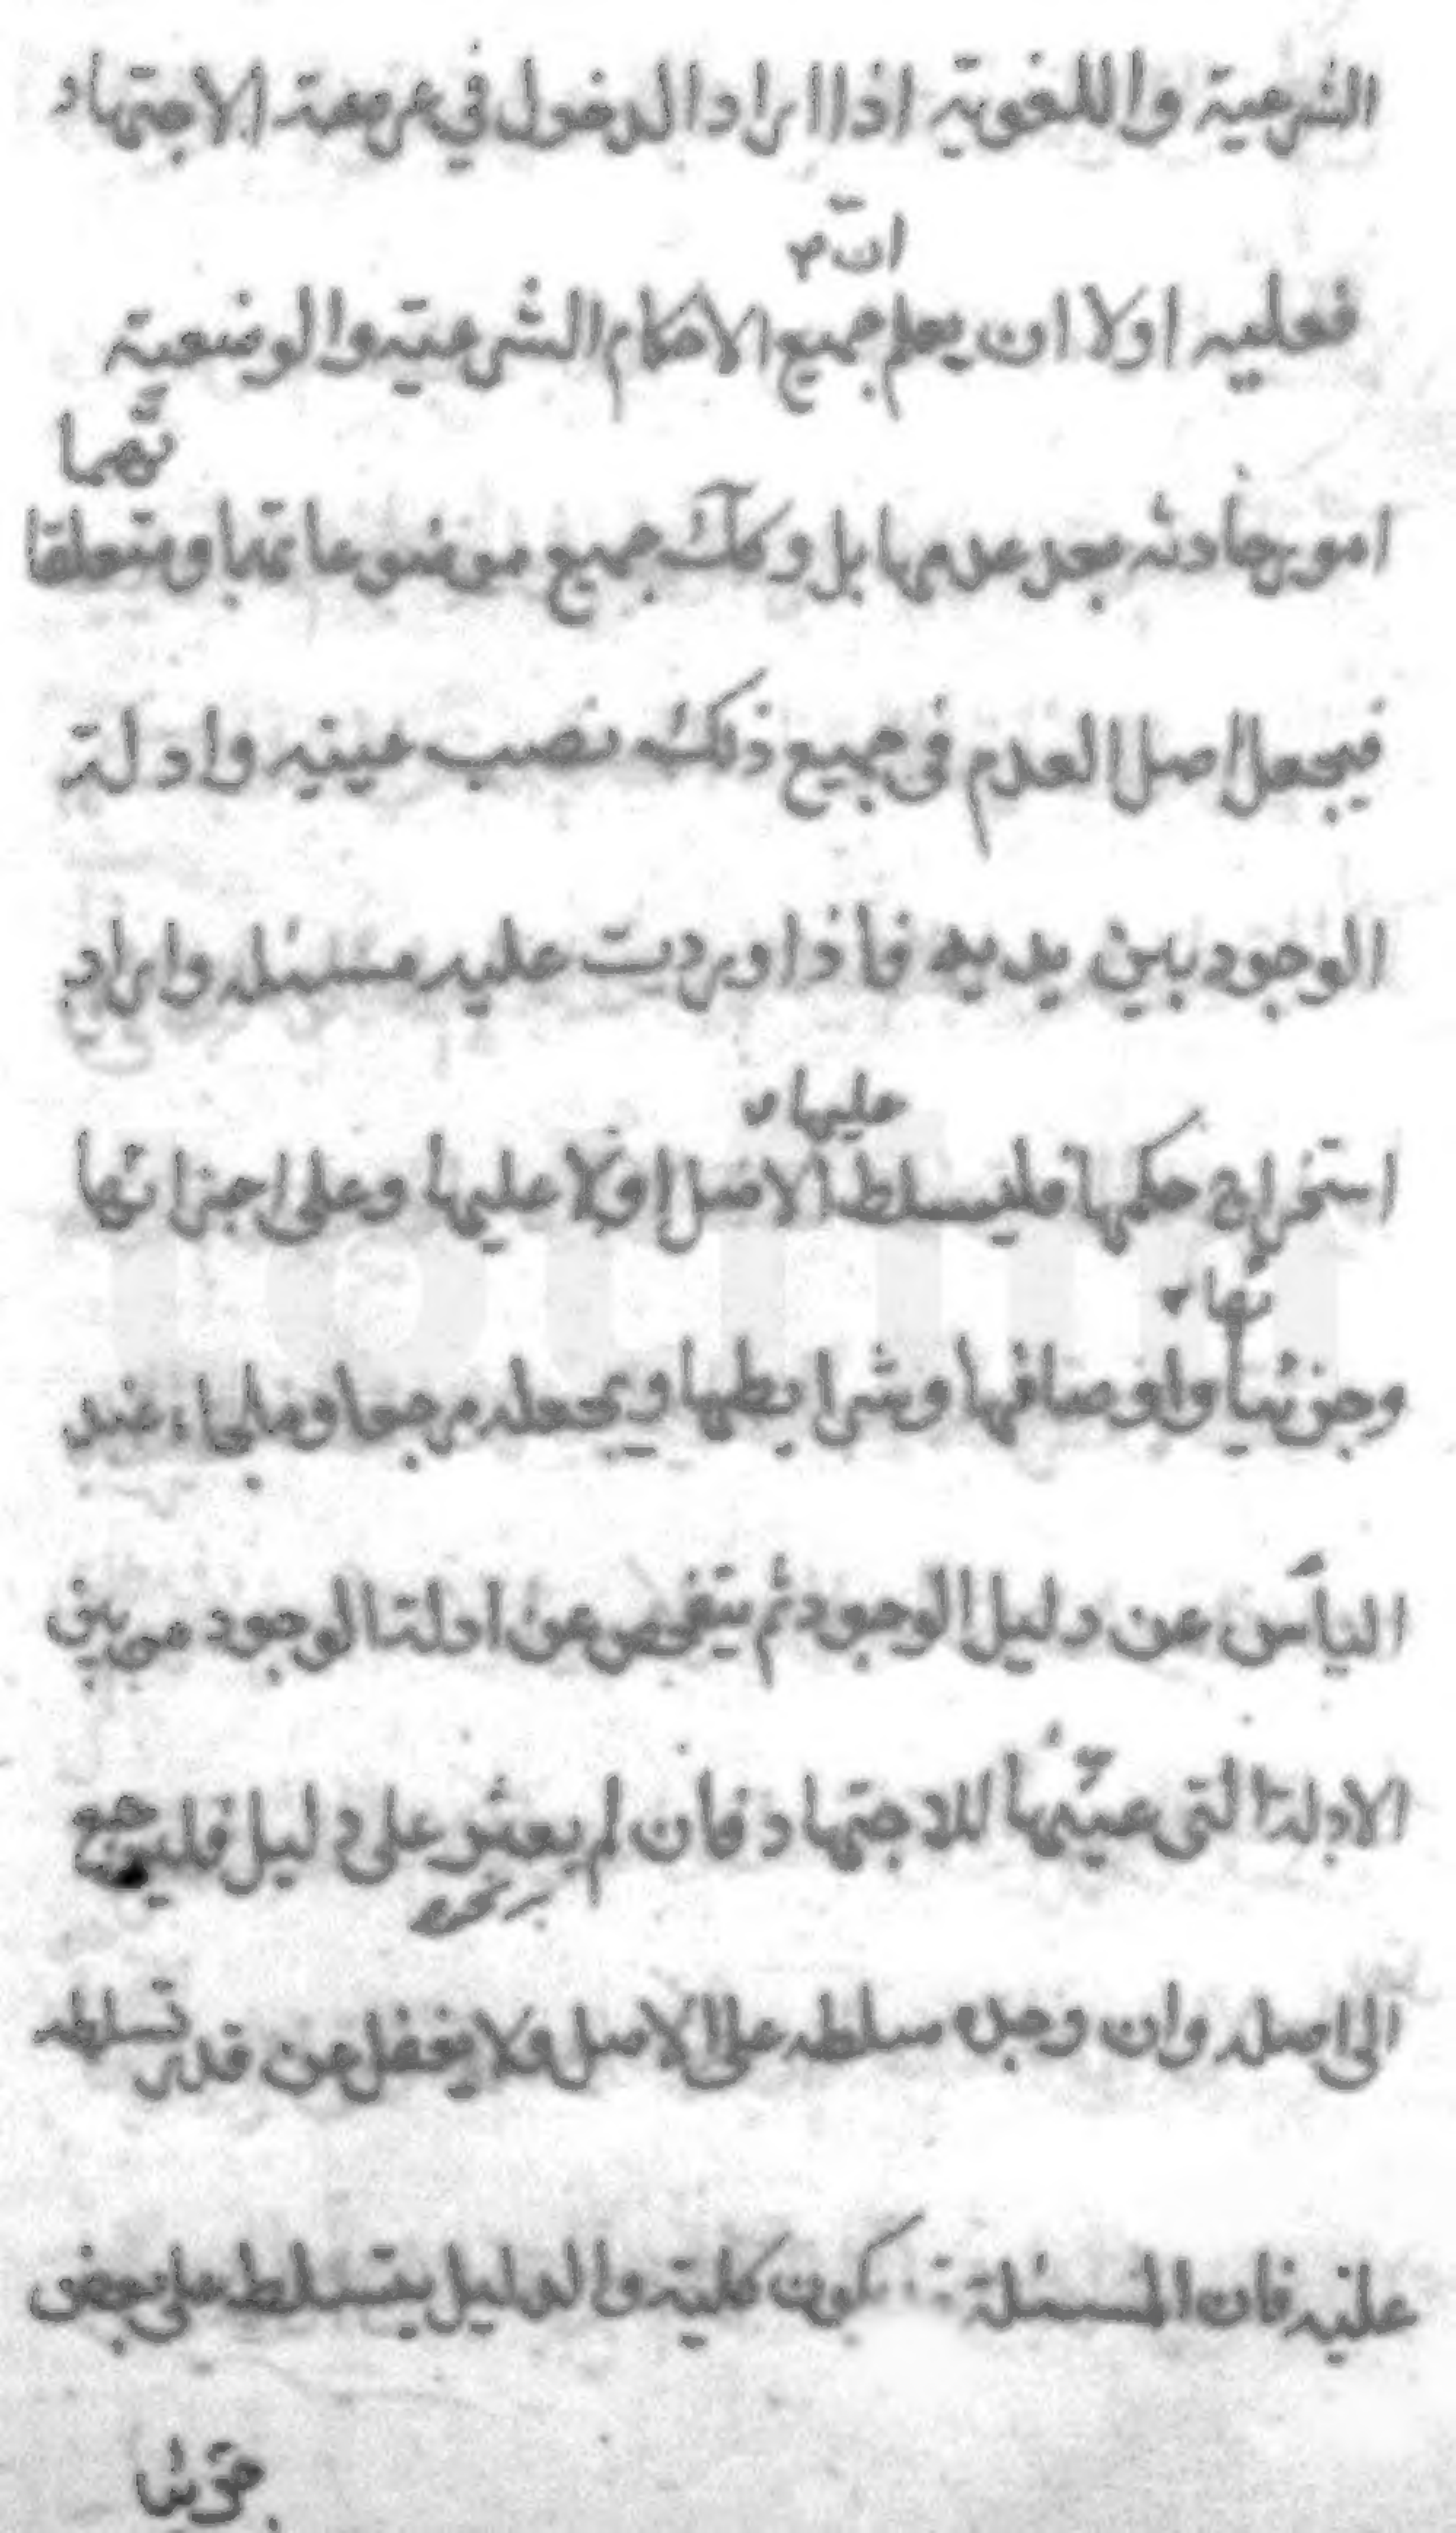 الشرعية واللغوية اذا اراد الدخول في عرصة الاجتهاد
انّ
فعليه اولا ان يعلم جميع الاحكام الشرعية والوضعية
تهما
امور حادثه بعد عدمها بل وكك جميع موضوعاتها ومتعلقا
فيجعل اصل العدم فى جميع ذلك نصب عينيه وادلة
الوجود بين يديه فاذا وردت عليه مسئله واراد
عليها
استخراج حكمها فليسلط الاصل اولا عليها وعلى اجزائها
تها
وجزئيا واوصافها وشرايطها ويجعله مرجعا وملجاء عند
اليأس عن دليل الوجود ثم يتفحص عن ادلة الوجود من بين
الادلة التى عينها للاجتهاد فان لم يعثر على دليل فليرجع
الى اصله وان وجده سلطه على الاصل ولا يغفل عن قدر تسلطه
عليه فان المسئلة تكون كلية والدليل يتسلط على بعض
جزئيا